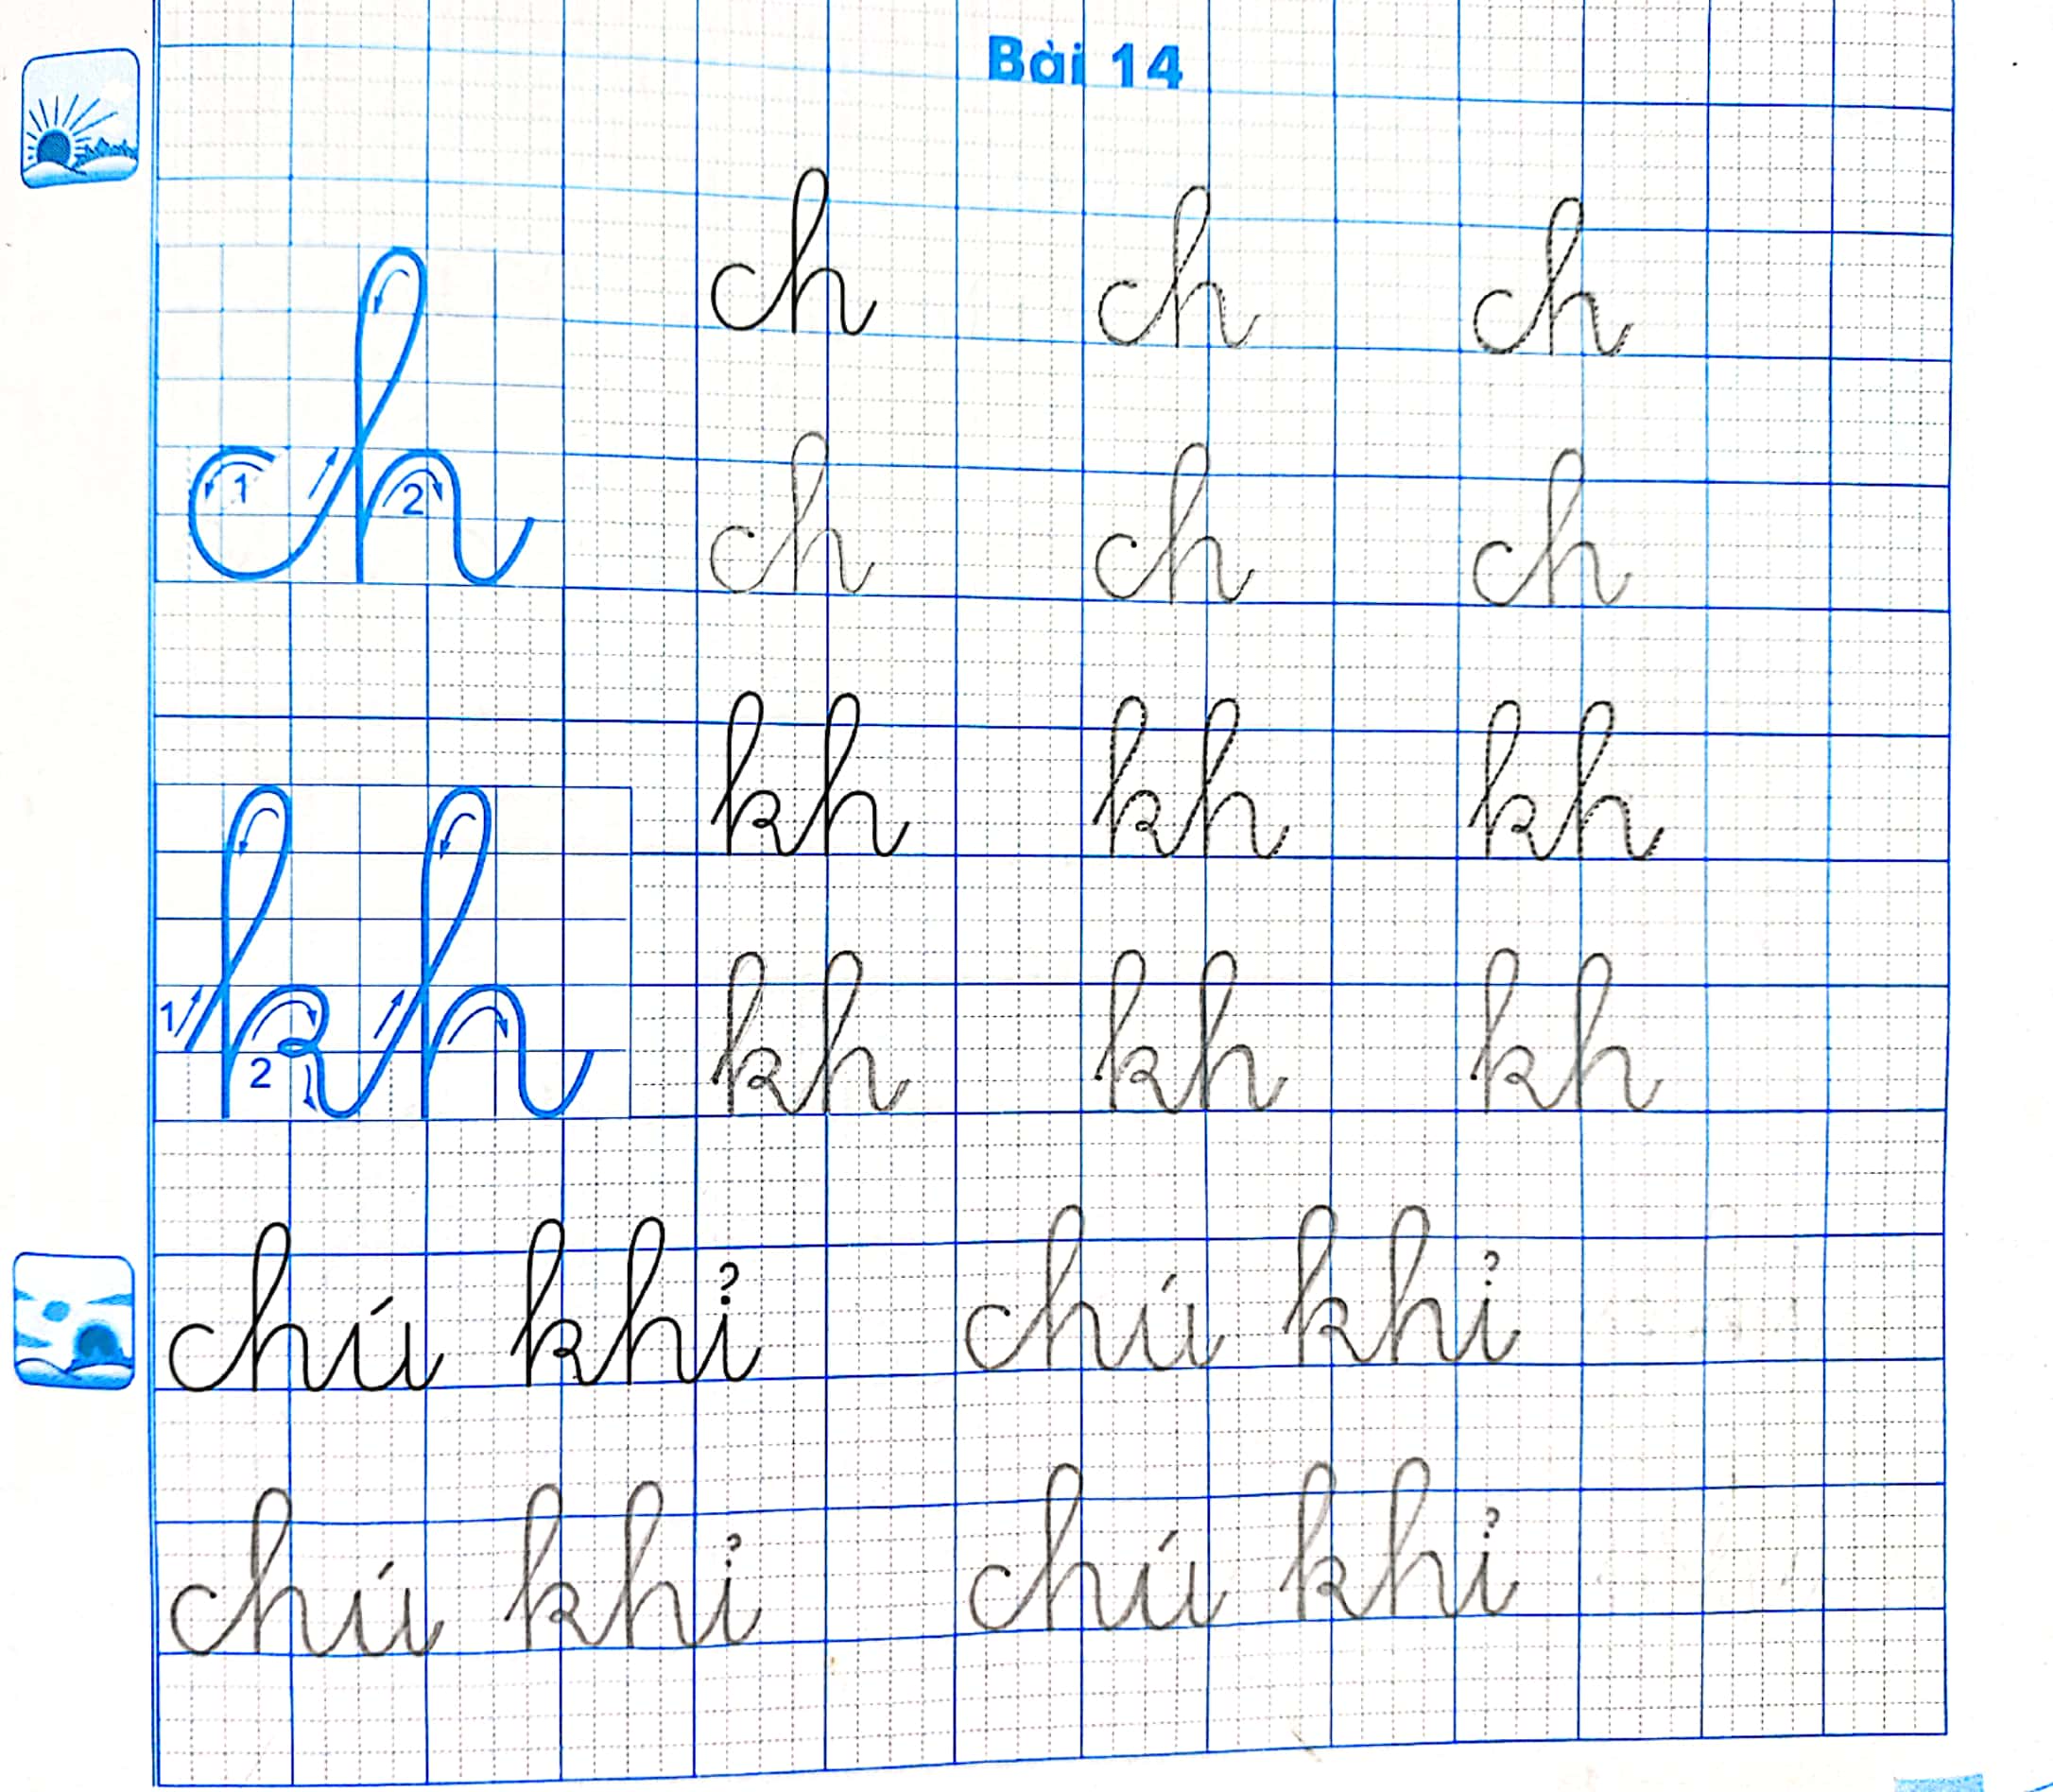 Bài 14
ch ch ch ch
1 2
ch ch ch
kh kh kh kh
1 2
kh kh kh
chú khỉ chú khỉ
chú khỉ chú khỉ